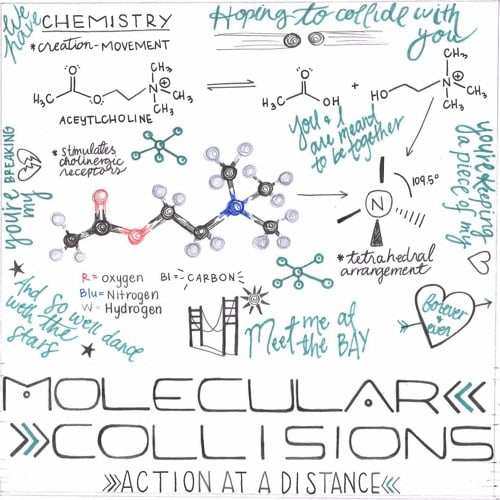 We have CHEMISTRY
*creation-MOVEMENT
Hoping to collide with
you
O
H3C
O
N
CH3
CH3
CH3
ACEYTLCHOLINE
O
H3C
OH
+
HO
N
CH3
CH3
CH3
*stimulates
cholinergic
receptors
You & I
are meant
to be together
you're BREAKING
my
109.5°
N
you're keeping
a piece of my
*tetrahedral
arrangement
R= oxygen
Blu= Nitrogen
W= Hydrogen
Bl= CARBON
And so we'll dance
with the
stars
Meet me at
the BAY
forever
ever
MOLECULAR
COLLISIONS
ACTION AT A DISTANCE